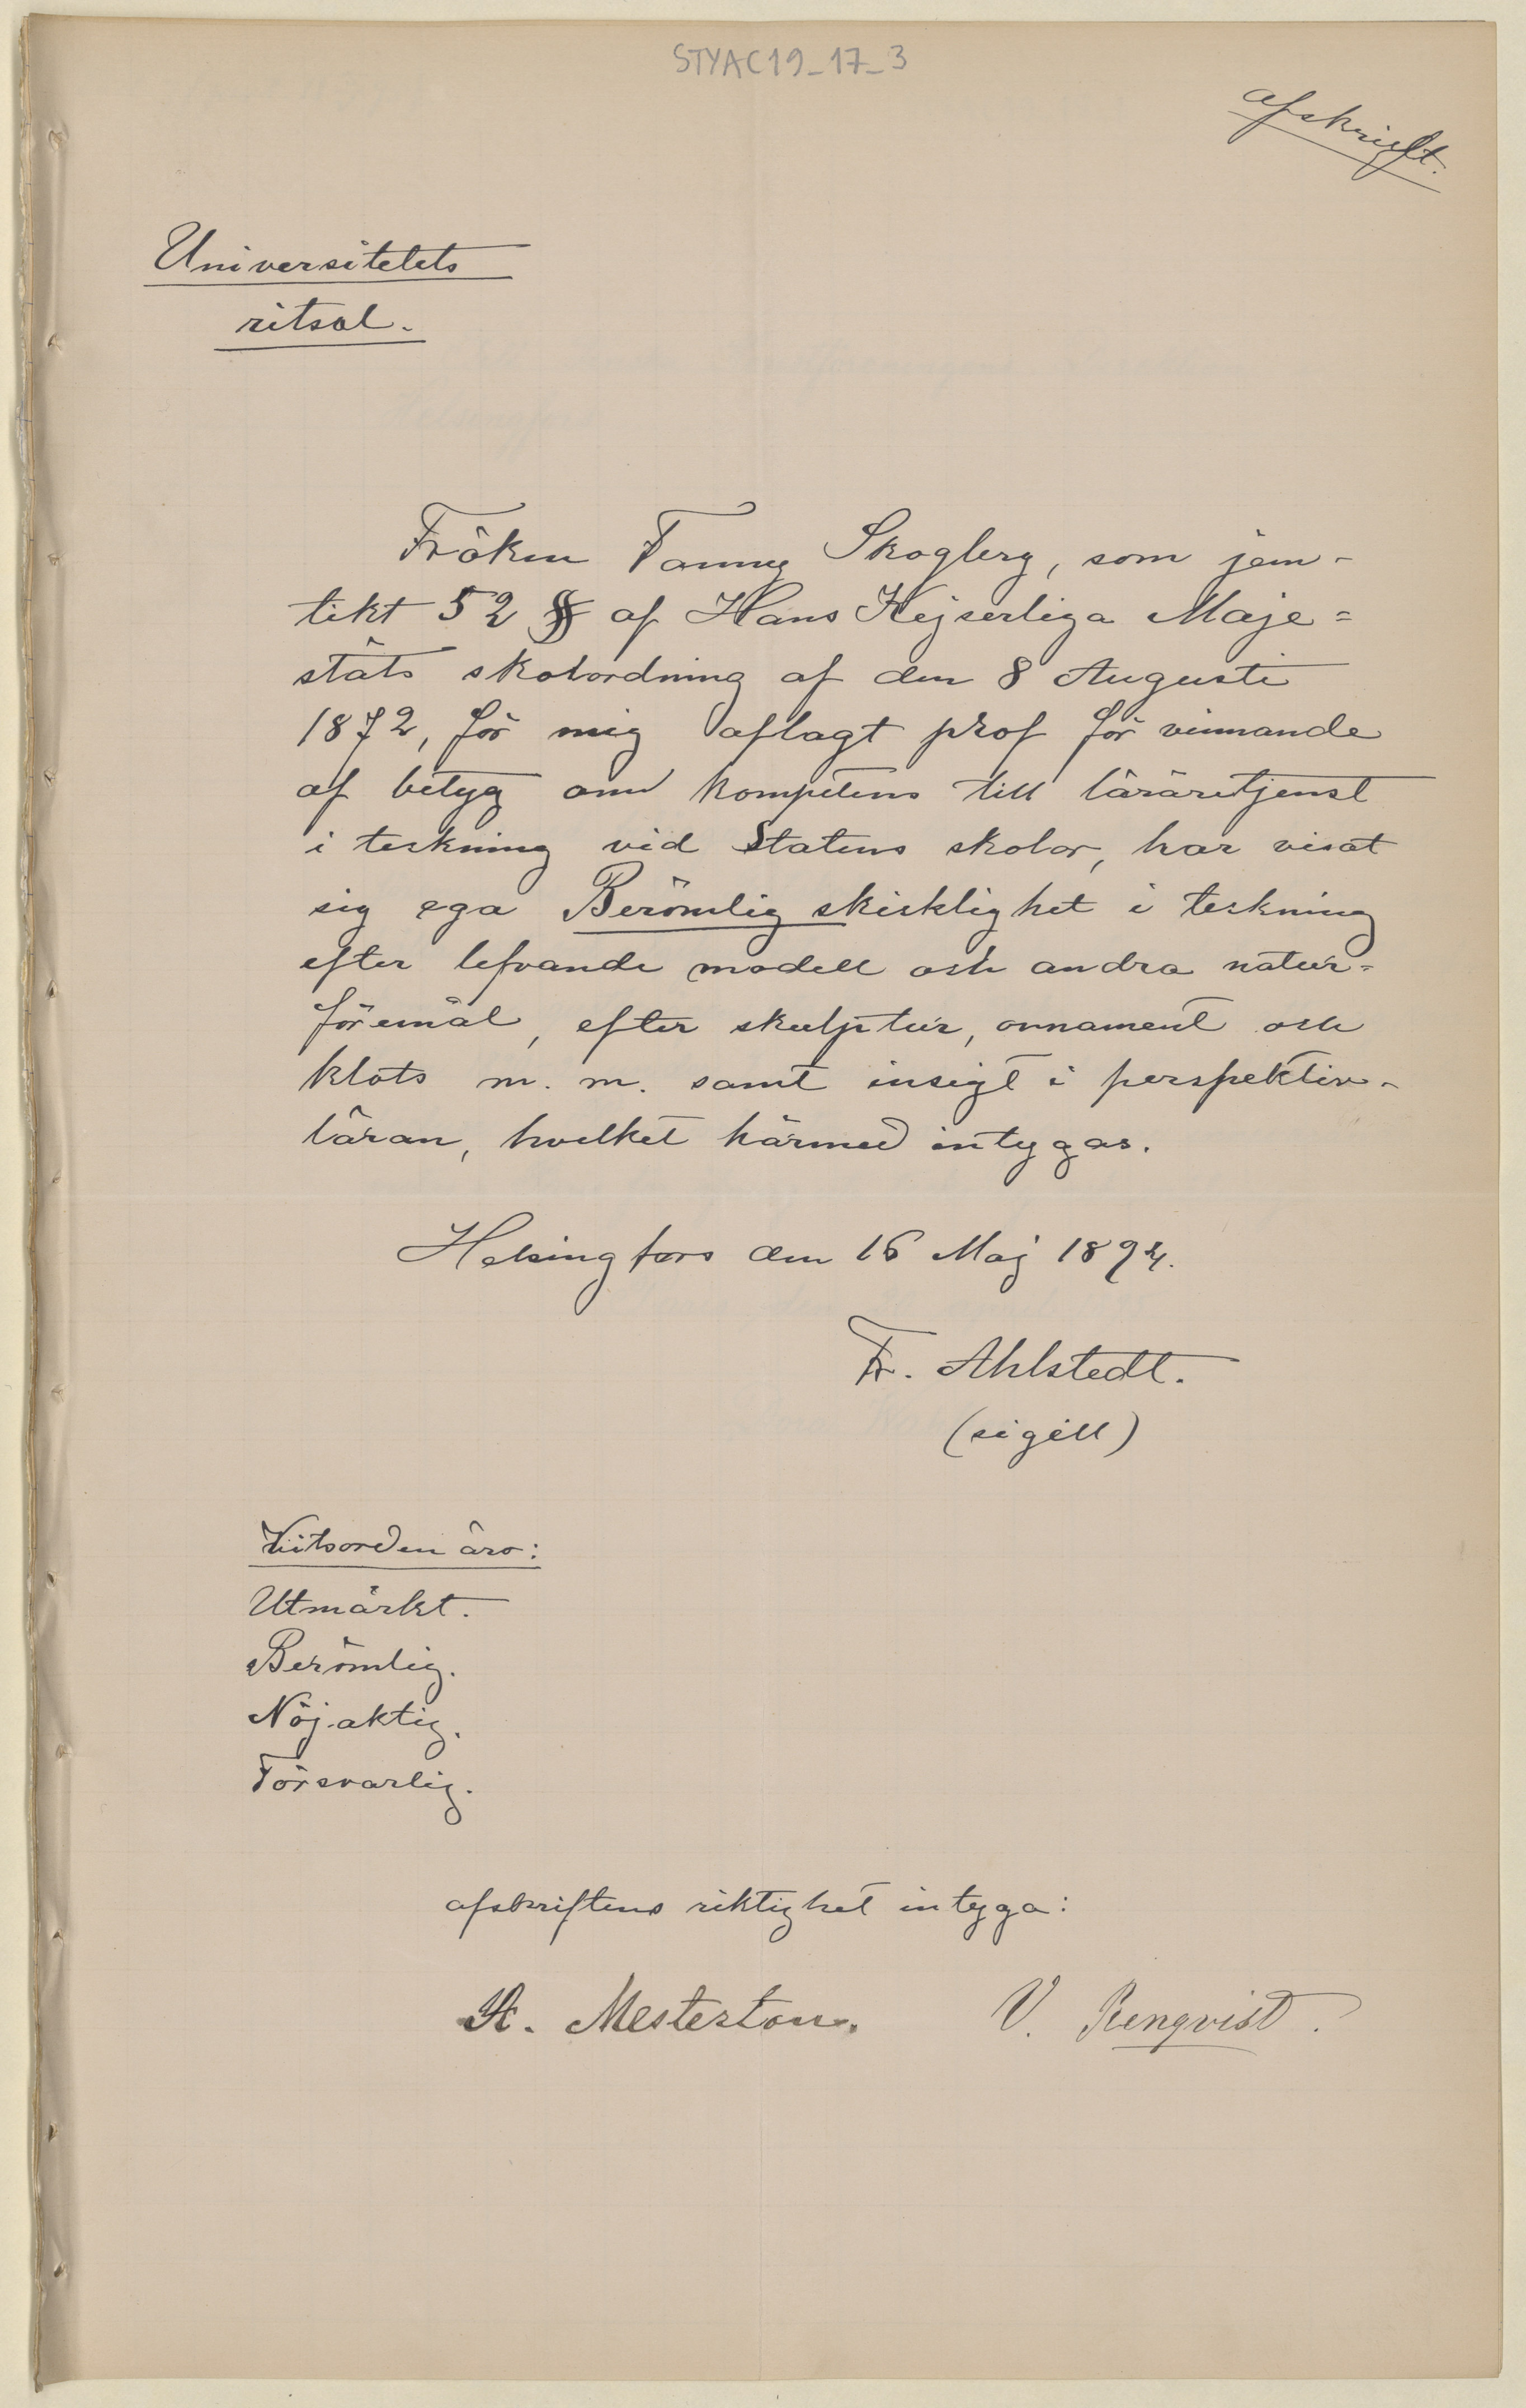 STYAC19_17_3
afskrift.
Universitetets
ritsal.
Fröken Fanny Skogberg, som jem-
likt 52 § af Hans Kejserliga Maje=
stäts skolordning af den 8 Augusti
1872, för mig aflagt prof för vinnande
af betyg om kompetens till läraretjenst
i teckning vid Statens skolor, har visat
sig ega Berömlig skicklighet i teckning
efter lefvande modell och andra natur=
föremål, efter skulptur, ornament och
klots m. m. samt insigt i perspektiv-
läran, hvilket härmed intygas.
Helsingfors den 16 Maj 1894.
Fr. Ahlstedt.
(sigill)
Vitsorden äro:
Utmärkt.
Berömlig.
Nöjaktig.
Försvarlig.
afskriftens riktighet intyga:
A. Mesterton. V. Renqvist.